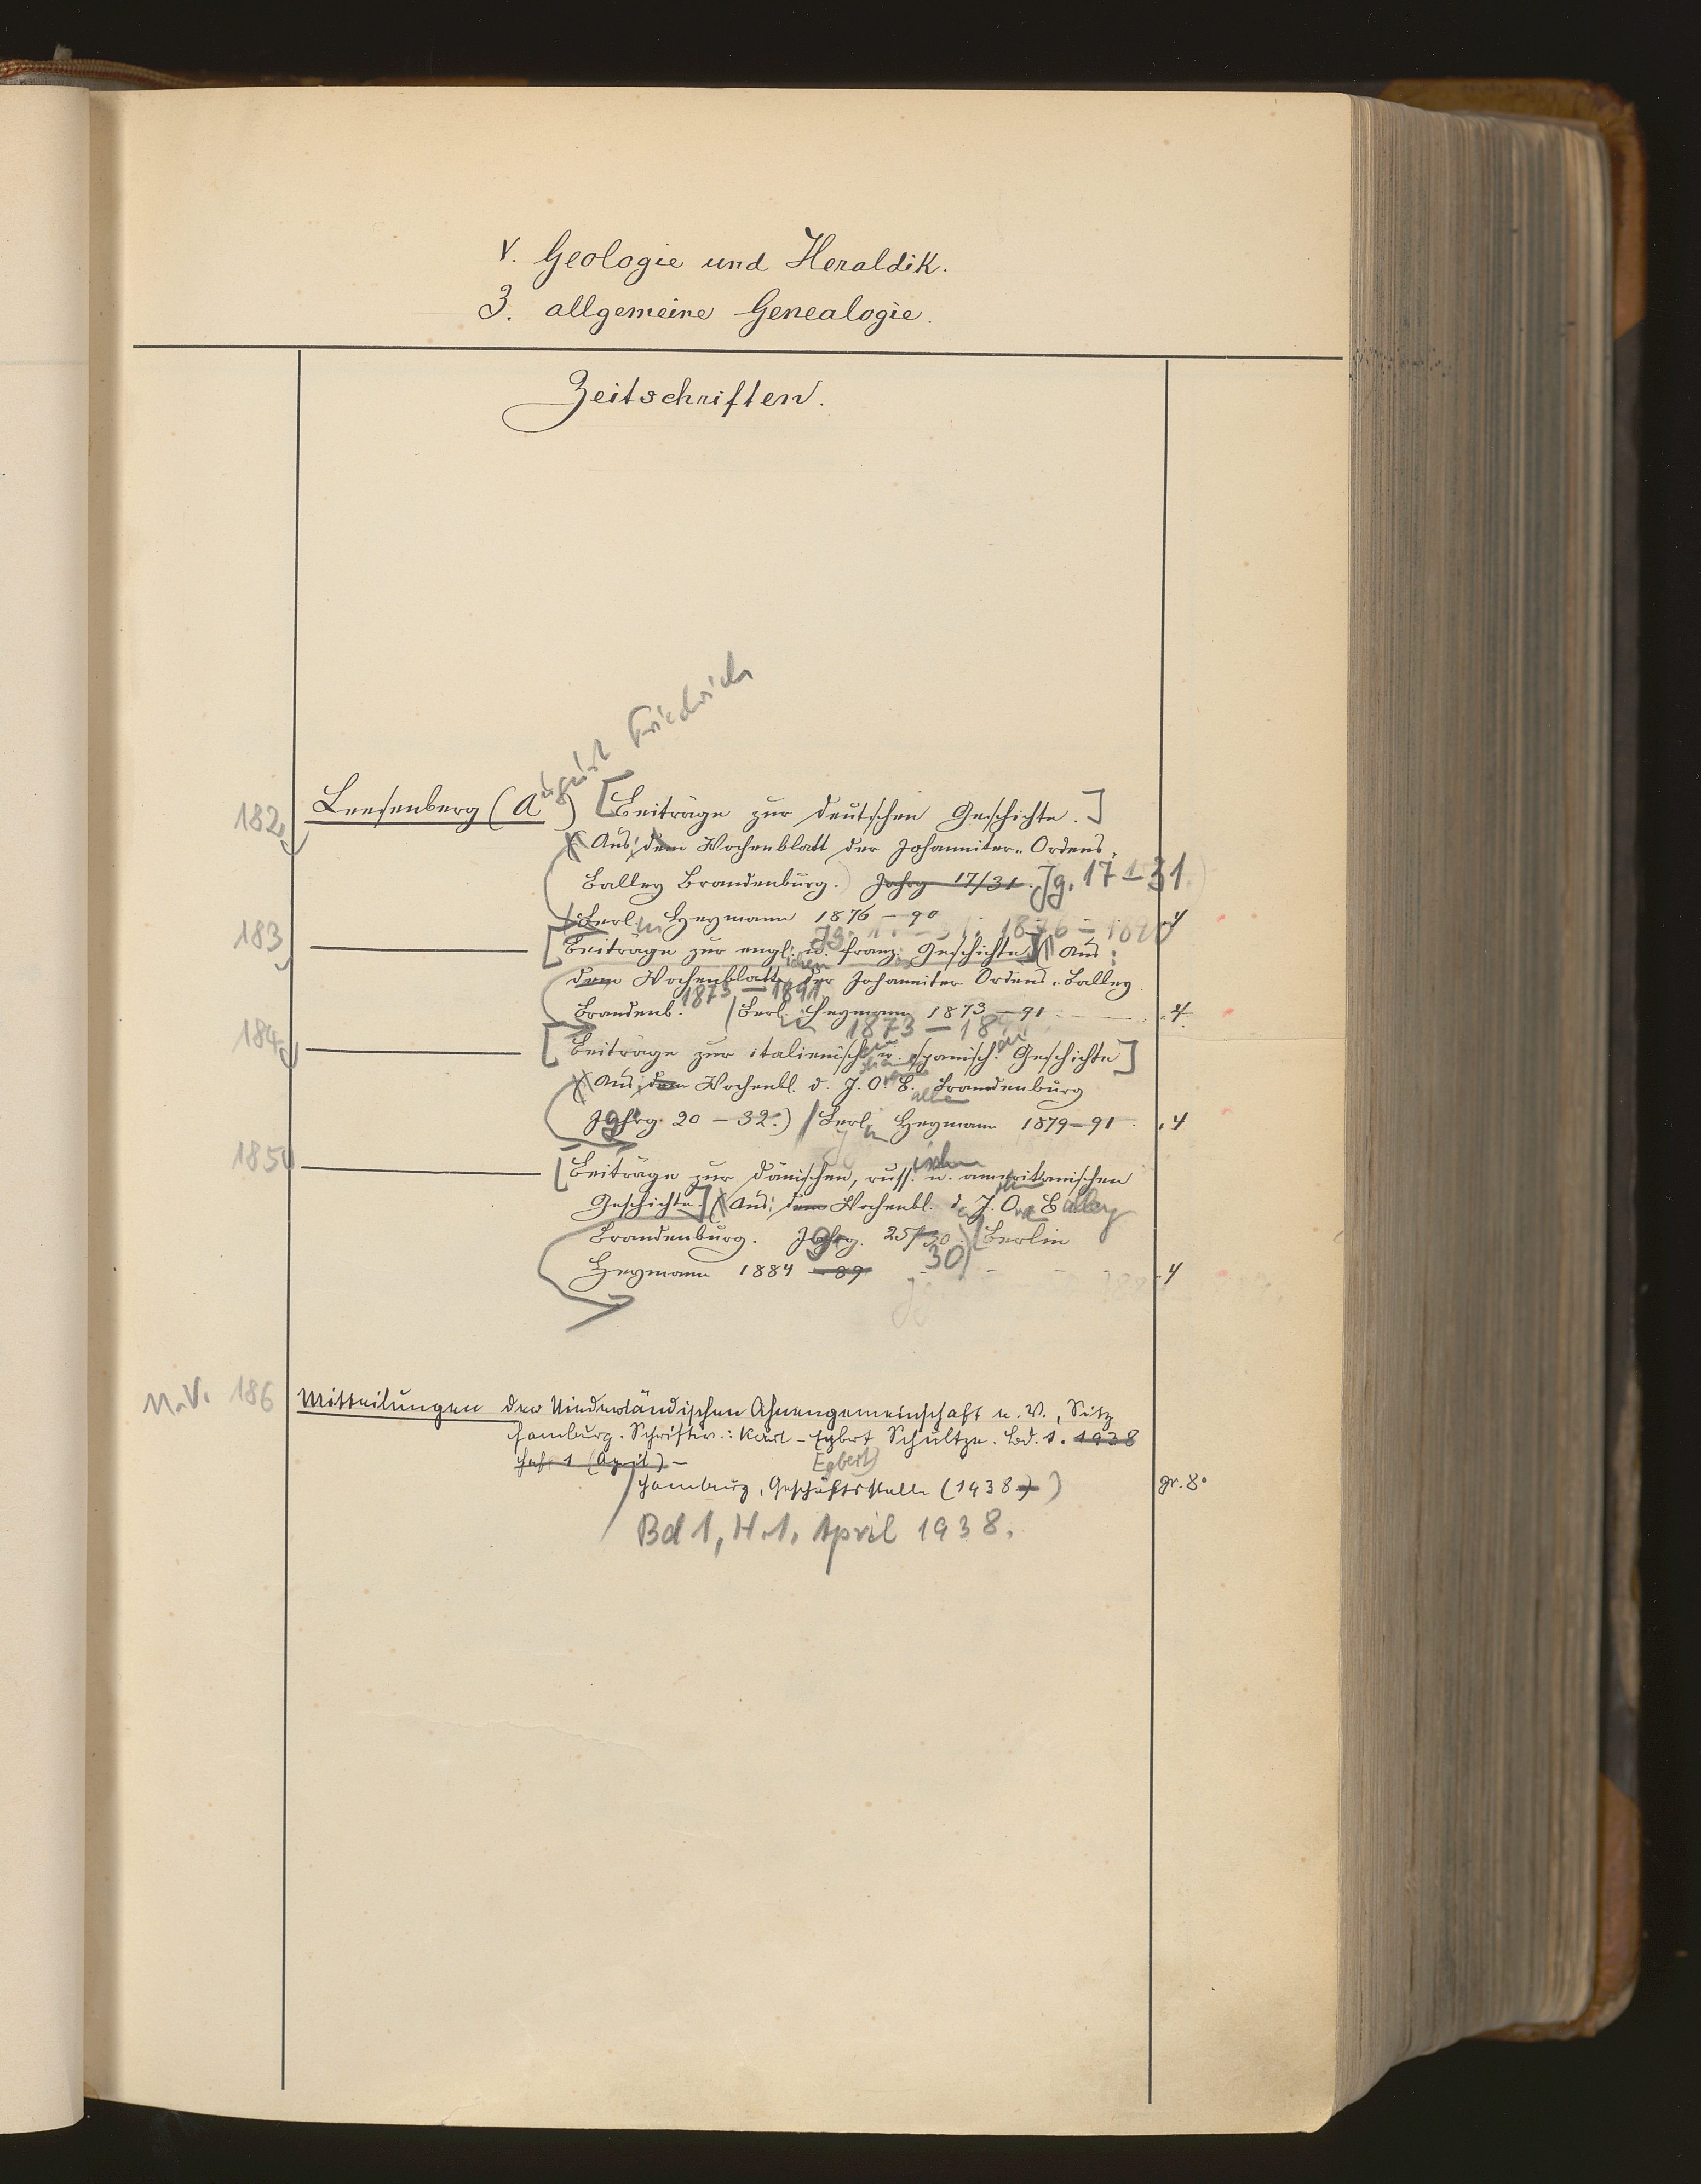 V. Geologie und Heraldik.
3. allgemeine Genealogie.
Zeitschriften.
August Friedrich
182 Leesenberg (A ) [Beiträge zur deutschen Geschichte.]
Aus: dem Wochenblatt der Johanniter-Ordens
Balley Brandenburg.) Jahrg 17/31. Jg. 17-31.
Berlin Heymann 1876-90 4
183 [Beiträge zur engl. u. franz. Geschichte] (Aus:
dem Wochenblatt der Johanniter Ordens-Balley
Brandenb. 1873-1891 / Berl. Heymann 1873-91 4
184 [Beiträge zur italienisch. u. spanisch. Geschichte]
(Aus: dem Wochenbl. d. J. O. B. Brandenburg
Jahrg. 20-32.) / Berl. Heymann 1879-91 4
185 [Beiträge zur dänischen, russ. u. amerikanischen
Geschichte.] (Aus: dem Wochenbl. d. J. O. Balley
Brandenburg. Jahrg. 25/30.) / Berlin
Heymann 1884-89 30) 4
N.V. 186 Mitteilungen der Niederländischen Ahnengemeinschaft e. V., Sitz
Hamburg. Schriftw.: Karl-Egbert Schultze. Bd. 1. 1938
Heft 1 (April)-
Egbert
Hamburg, Geschäftsstelle (1938 ) gr. 8°
Bd 1, H. 1. April 1938.